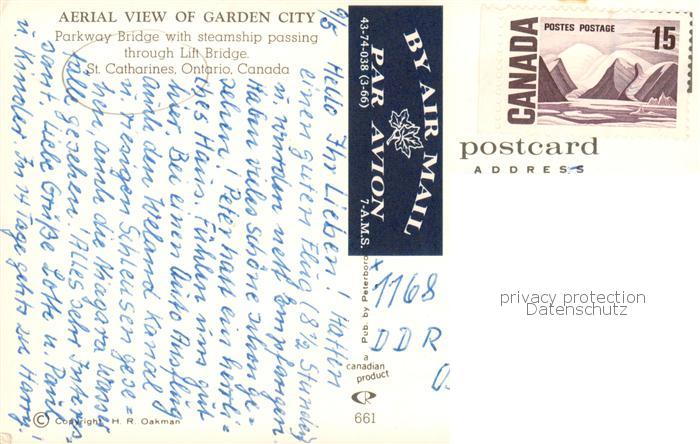 AERIAL VIEW OF GARDEN CITY
Parkway Bridge with steamship passing
through Lift Bridge.
St. Catharines, Ontario, Canada
9/5 Hello Ihr Lieben! Hatten
einen guten Flug (8½ Stunden)
u. wurden nett Empfangen.
Haben vieles schöne
sehen! Peter hat ein herrli=
ches Haus. Fühlen uns gut
hier. Bei einen Auto Ausflug
auch den Weland Kanal
u. riesigen Schleusen gese=
hen, auch die Niagara Wasser
fälle gesehen! Alles sehr Interes-
sant. Liebe Grüße Lotte u. Paul
u. Kinder. In 14 Tage gehts zu Harry!
© Copyright H. R. Oakman
BY AIR MAIL
PAR AVION
43-74-038 (3-66)
7-A.M.S.
Pub. by Peterboro
a
canadian
product
661
CANADA
POSTES POSTAGE
15
postcard
ADDRESS
1168
DDR
privacy protection
Datenschutz